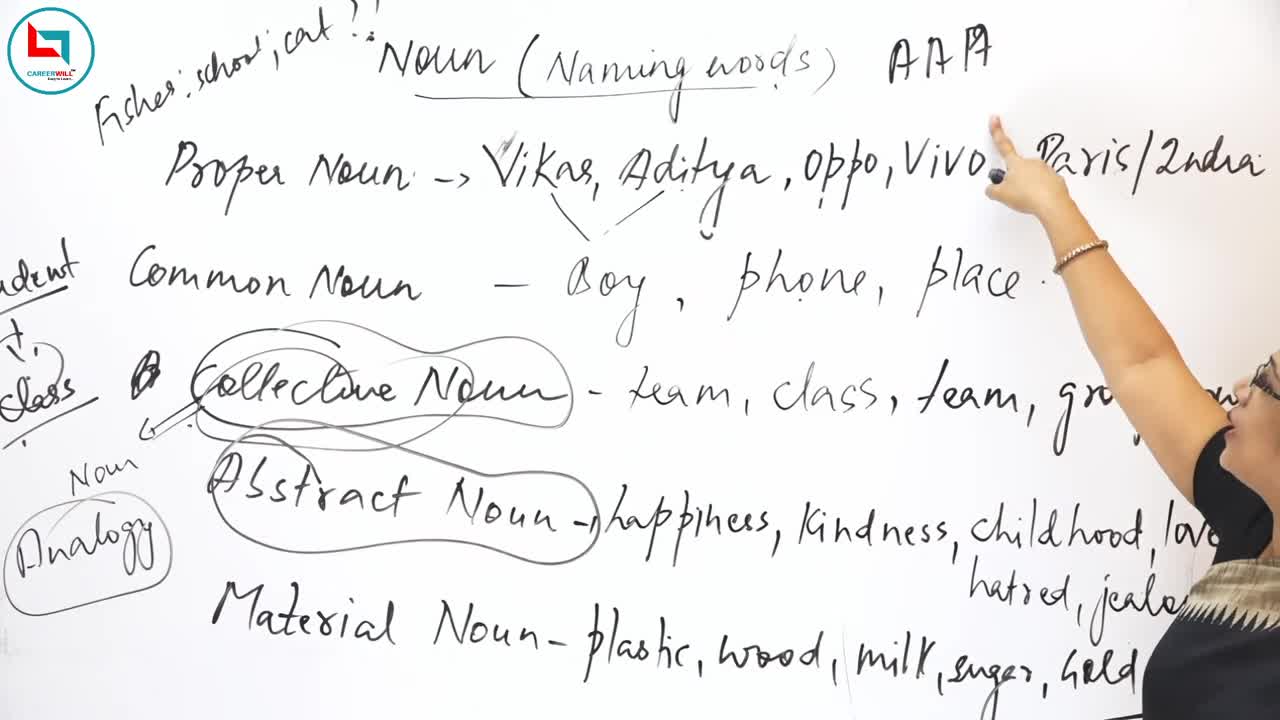 CAREERWILL
Fisher : school ; cat ??
Noun (Naming words) AAA
Proper Noun -> Vikas, Aditya, Oppo, Vivo, Paris/India
Common Noun - Boy, phone, place.
class
Collective Noun - team, class, team,
Noun
Analogy
Abstract Noun -, happiness, kindness, childhood, love
hatred,
Material Noun - plastic, wood, milk, suger, Gold